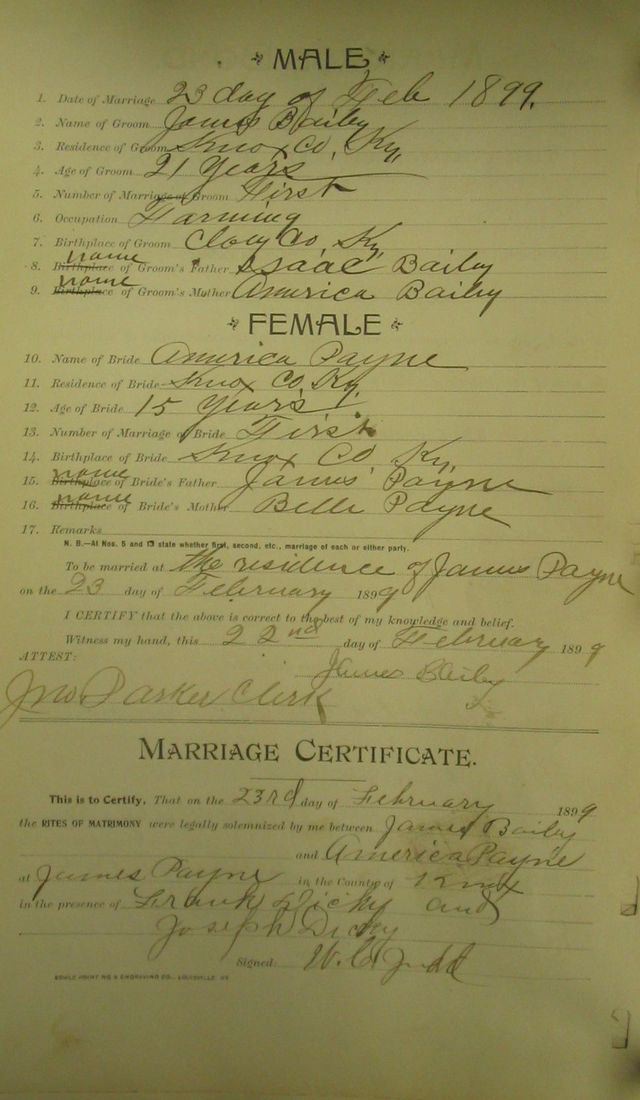 MALE
1. Date of Marriage 23 day of Feb 1899.
2. Name of Groom James Bailey
3. Residence of Groom Knox Co, Ky,
4. Age of Groom 21 Years
5. Number of Marriage of Groom First
6. Occupation Farming
7. Birthplace of Groom Clay Co, Ky,
8. Birthplace name of Groom's Father Isaac Bailey
9. Birthplace name of Groom's Mother America Bailey
FEMALE
10. Name of Bride America Payne
11. Residence of Bride Knox Co, Ky,
12. Age of Bride 15 Years
13. Number of Marriage of Bride First
14. Birthplace of Bride Knox Co Ky,
15. Birthplace name of Bride's Father James Payne
16. Birthplace name of Bride's Mother Belle Payne
17. Remarks
N. B.—At Nos. 5 and 13 state whether first, second, etc., marriage of each or either party.
To be married at the residence of James Payne
on the 23 day of February 1899
I CERTIFY that the above is correct to the best of my knowledge and belief.
Witness my hand, this 22nd day of February 1899
ATTEST:
James Bailey
Jno. Parker Clerk
MARRIAGE CERTIFICATE.
This is to Certify, That on the 23rd day of February 1899
the RITES OF MATRIMONY were legally solemnized by me between James Bailey
and America Payne
at James Payne in the County of Knox
in the presence of Frank Dicky and
Joseph Dicky
Signed: Judd